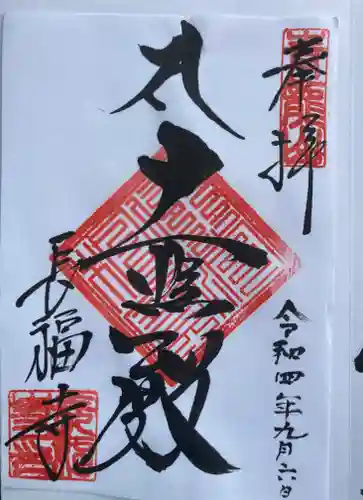 奉拝
令和四年九月六日
大悲殿
長福寺